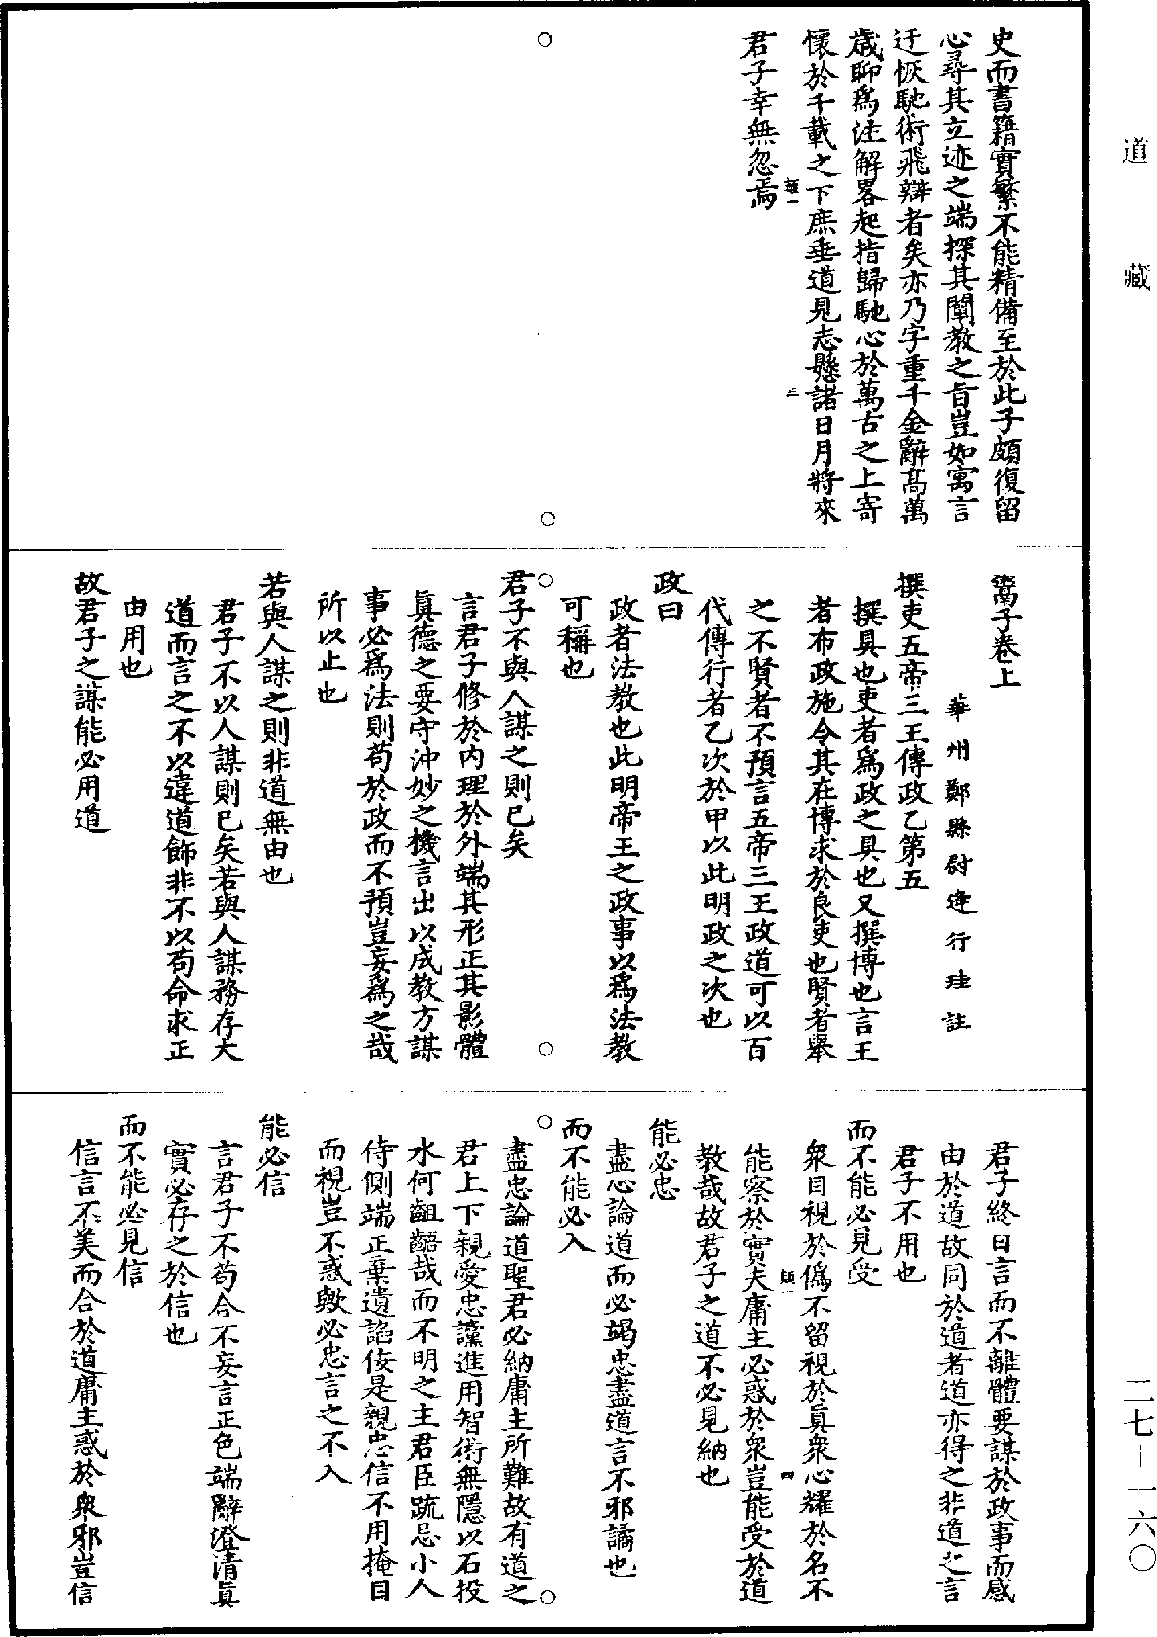 道藏
史而書籍實繁不能精備至於此子頗復留
心尋其立迹之端探其闡教之旨豈如寓言
迂恢馳術飛辯者矣亦乃字重千金辭高萬
歲聊爲注解畧起指歸馳心於萬古之上寄
懷於千載之下庶垂道見志懸諸日月將來
君子幸無忽焉
三
鬻子卷上
華州鄭縣尉逢行珪註
撰吏五帝三王傳政乙第五
撰具也吏者爲政之具也又撰博也言王
者布政施令其在博求於良吏也賢者舉
之不賢者不預言五帝三王政道可以百
代傳行者乙次於甲以此明政之次也
政曰
政者法教也此明帝王之政事以爲法教
可稱也
君子不與人謀之則已矣
言君子修於內理於外端其形正其影體
眞德之要守沖妙之機言出以成教方謀
事必爲法則苟於政而不預豈妄爲之哉
所以止也
若與人謀之則非道無由也
君子不以人謀則已矣若與人謀務存大
道而言之不以違道飾非不以苟命求正
由用也
故君子之謀能必用道
君子終日言而不離體要謀於政事而感
由於道故同於道者道亦得之非道之言
君子不用也
而不能必見受
衆目視於僞不留視於眞衆心耀於名不
能察於實夫庸主必惑於衆豈能受於道
教哉故君子之道不必見納也
四
能必忠
盡心論道而必竭忠盡道言不邪謟也
而不能必入
盡忠論道聖君必納庸主所難故有道之
君上下親愛忠讜進用智術無隱以石投
水何齟齬哉而不明之主君臣疏忌小人
侍側端正棄遺諂佞是親忠信不用掩目
而視豈不惑歟必忠言之不入
能必信
言君子不苟合不妄言正色端辭澄清眞
實必存之於信也
而不能必見信
信言不美而合於道庸主惑於衆邪豈信
二七－一六〇